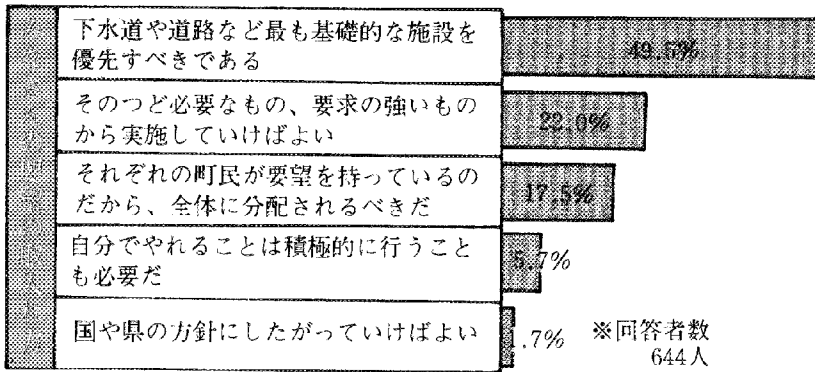 下水道や道路など最も基礎的な施設を
優先すべきである
49.5%
そのつど必要なもの、要求の強いもの
から実施していけばよい
22.0%
それぞれの町民が要望を持っているの
だから、全体に分配されるべきだ
17.5%
自分でやれることは積極的に行うこと
も必要だ
5.7%
国や県の方針にしたがっていけばよい
1.7%
※回答者数
644人